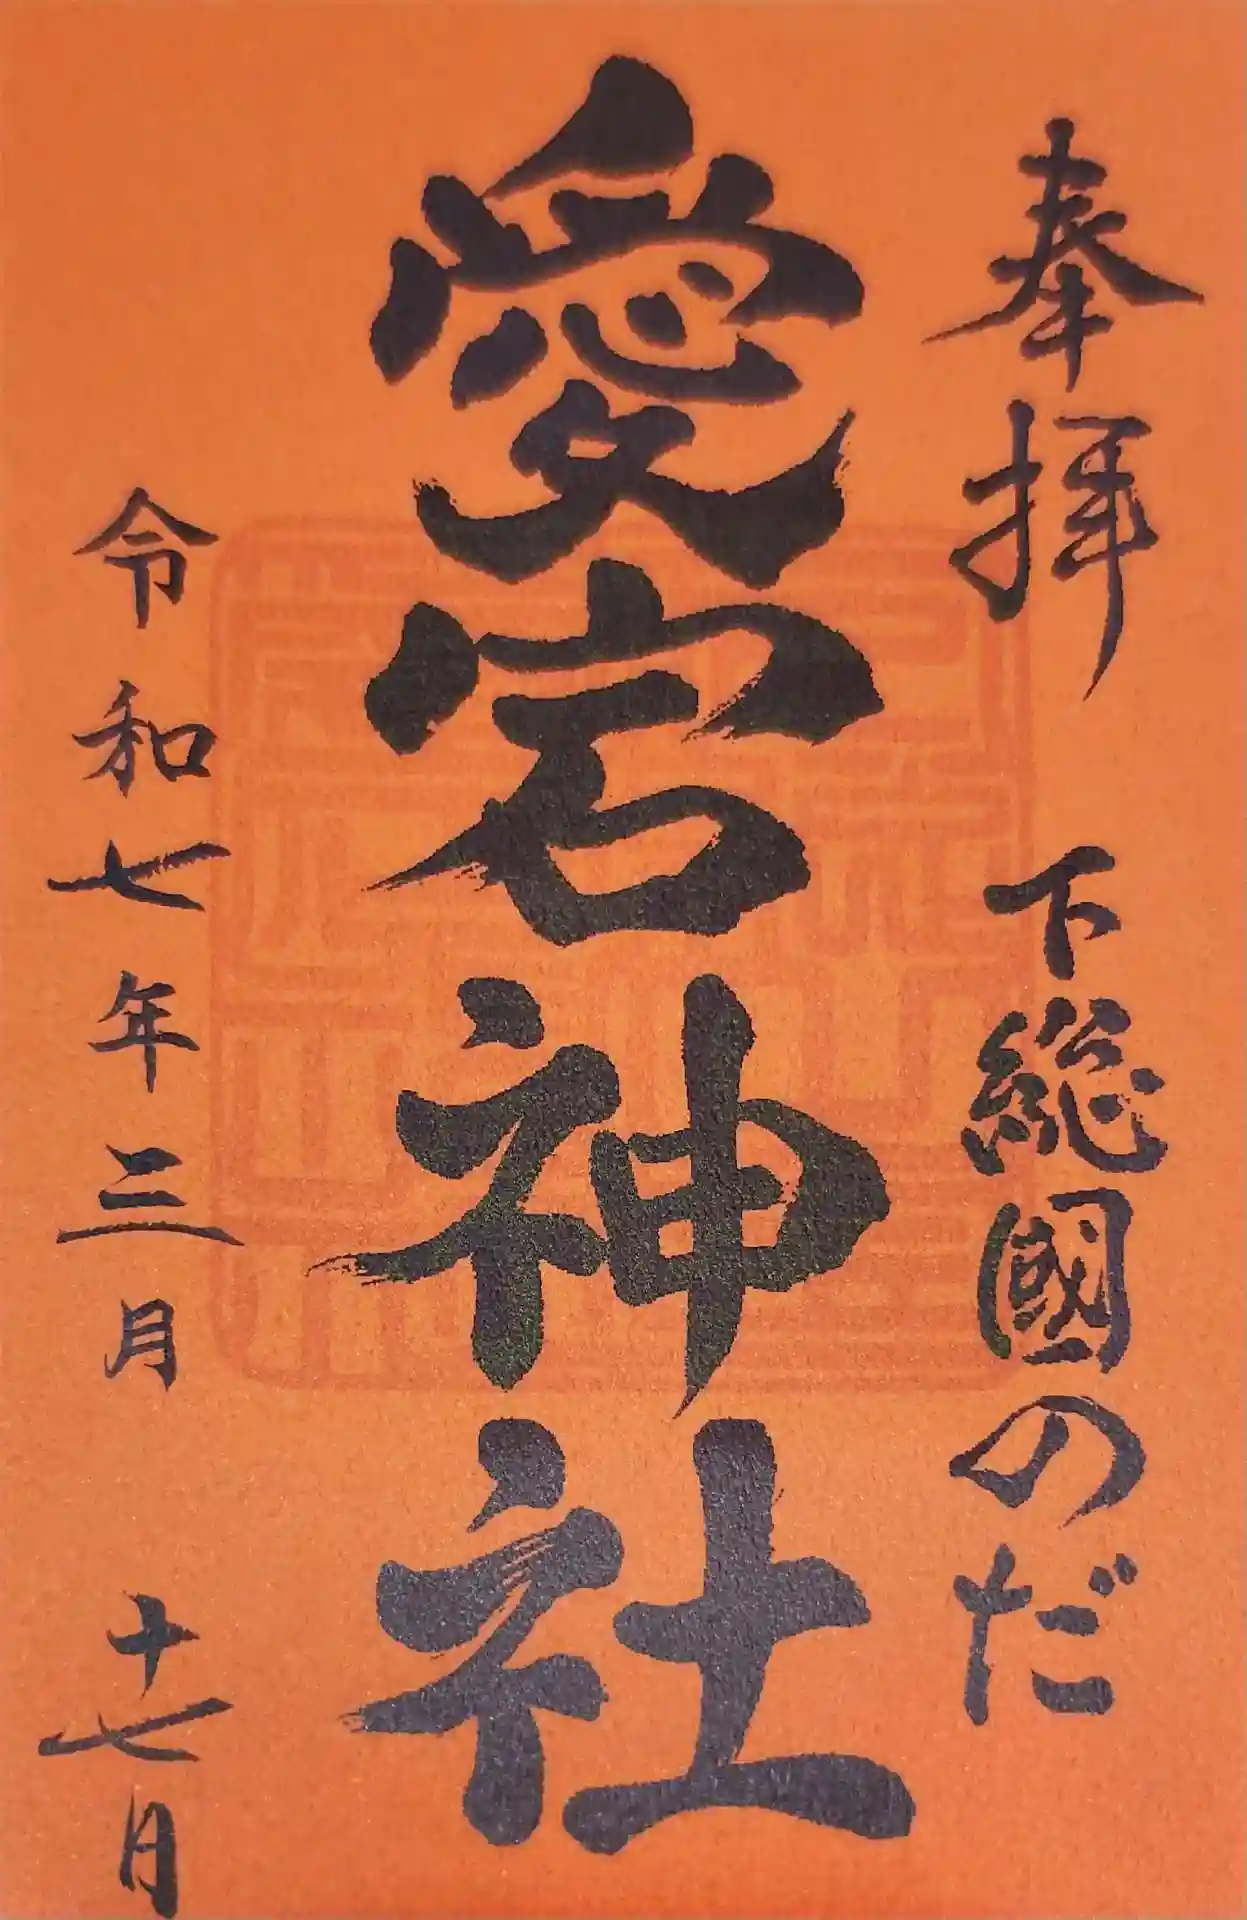 奉拝 下総國のだ
愛宕神社
令和七年三月 十七日